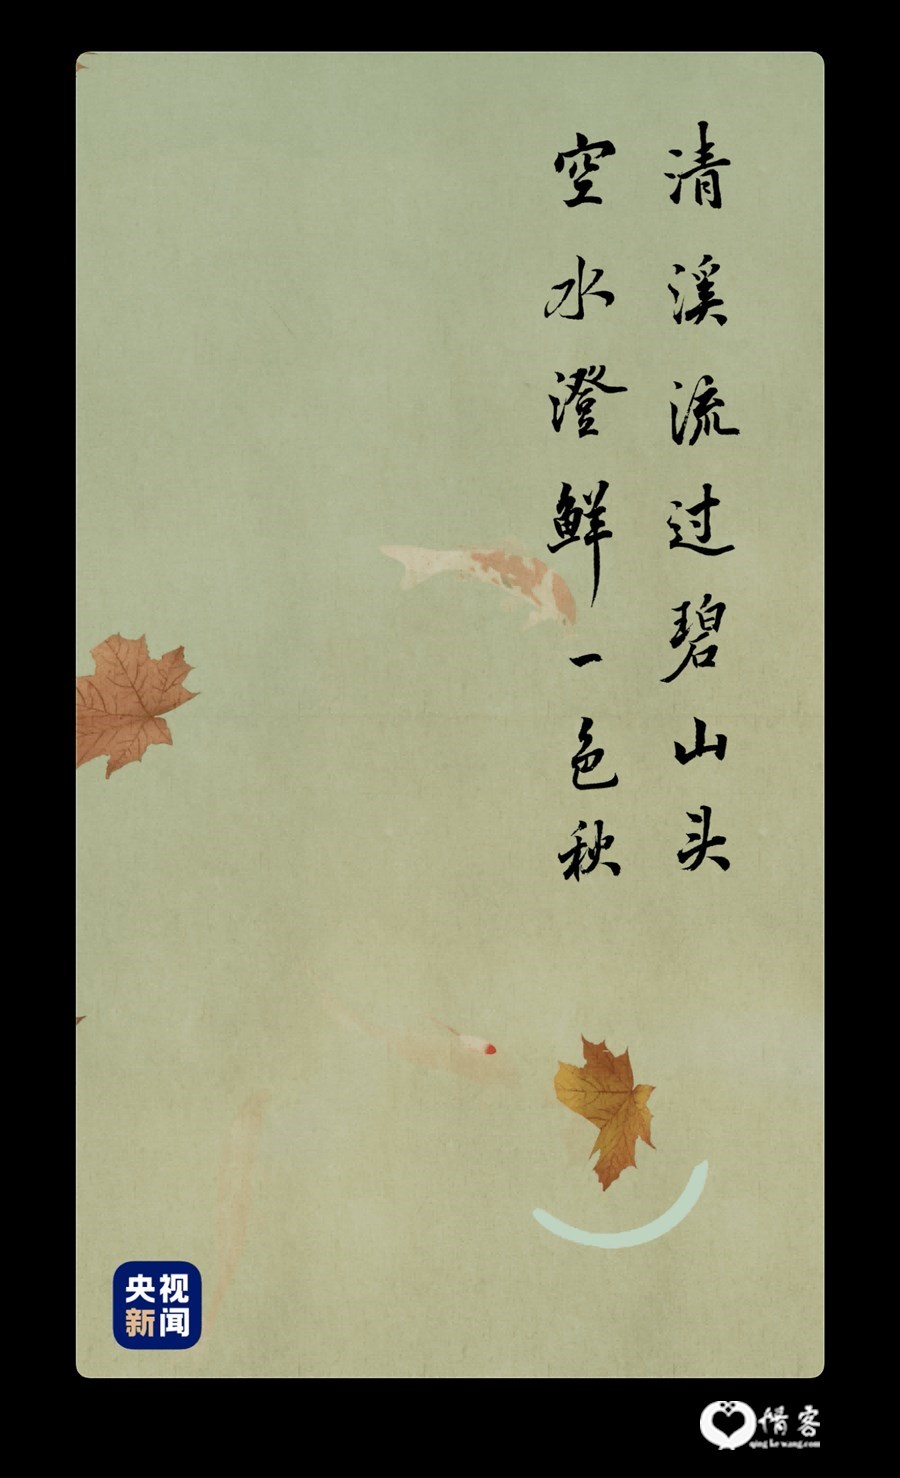 清溪流过碧山头
空水澄鲜一色秋
央视
新闻
情客
qingkewang.com